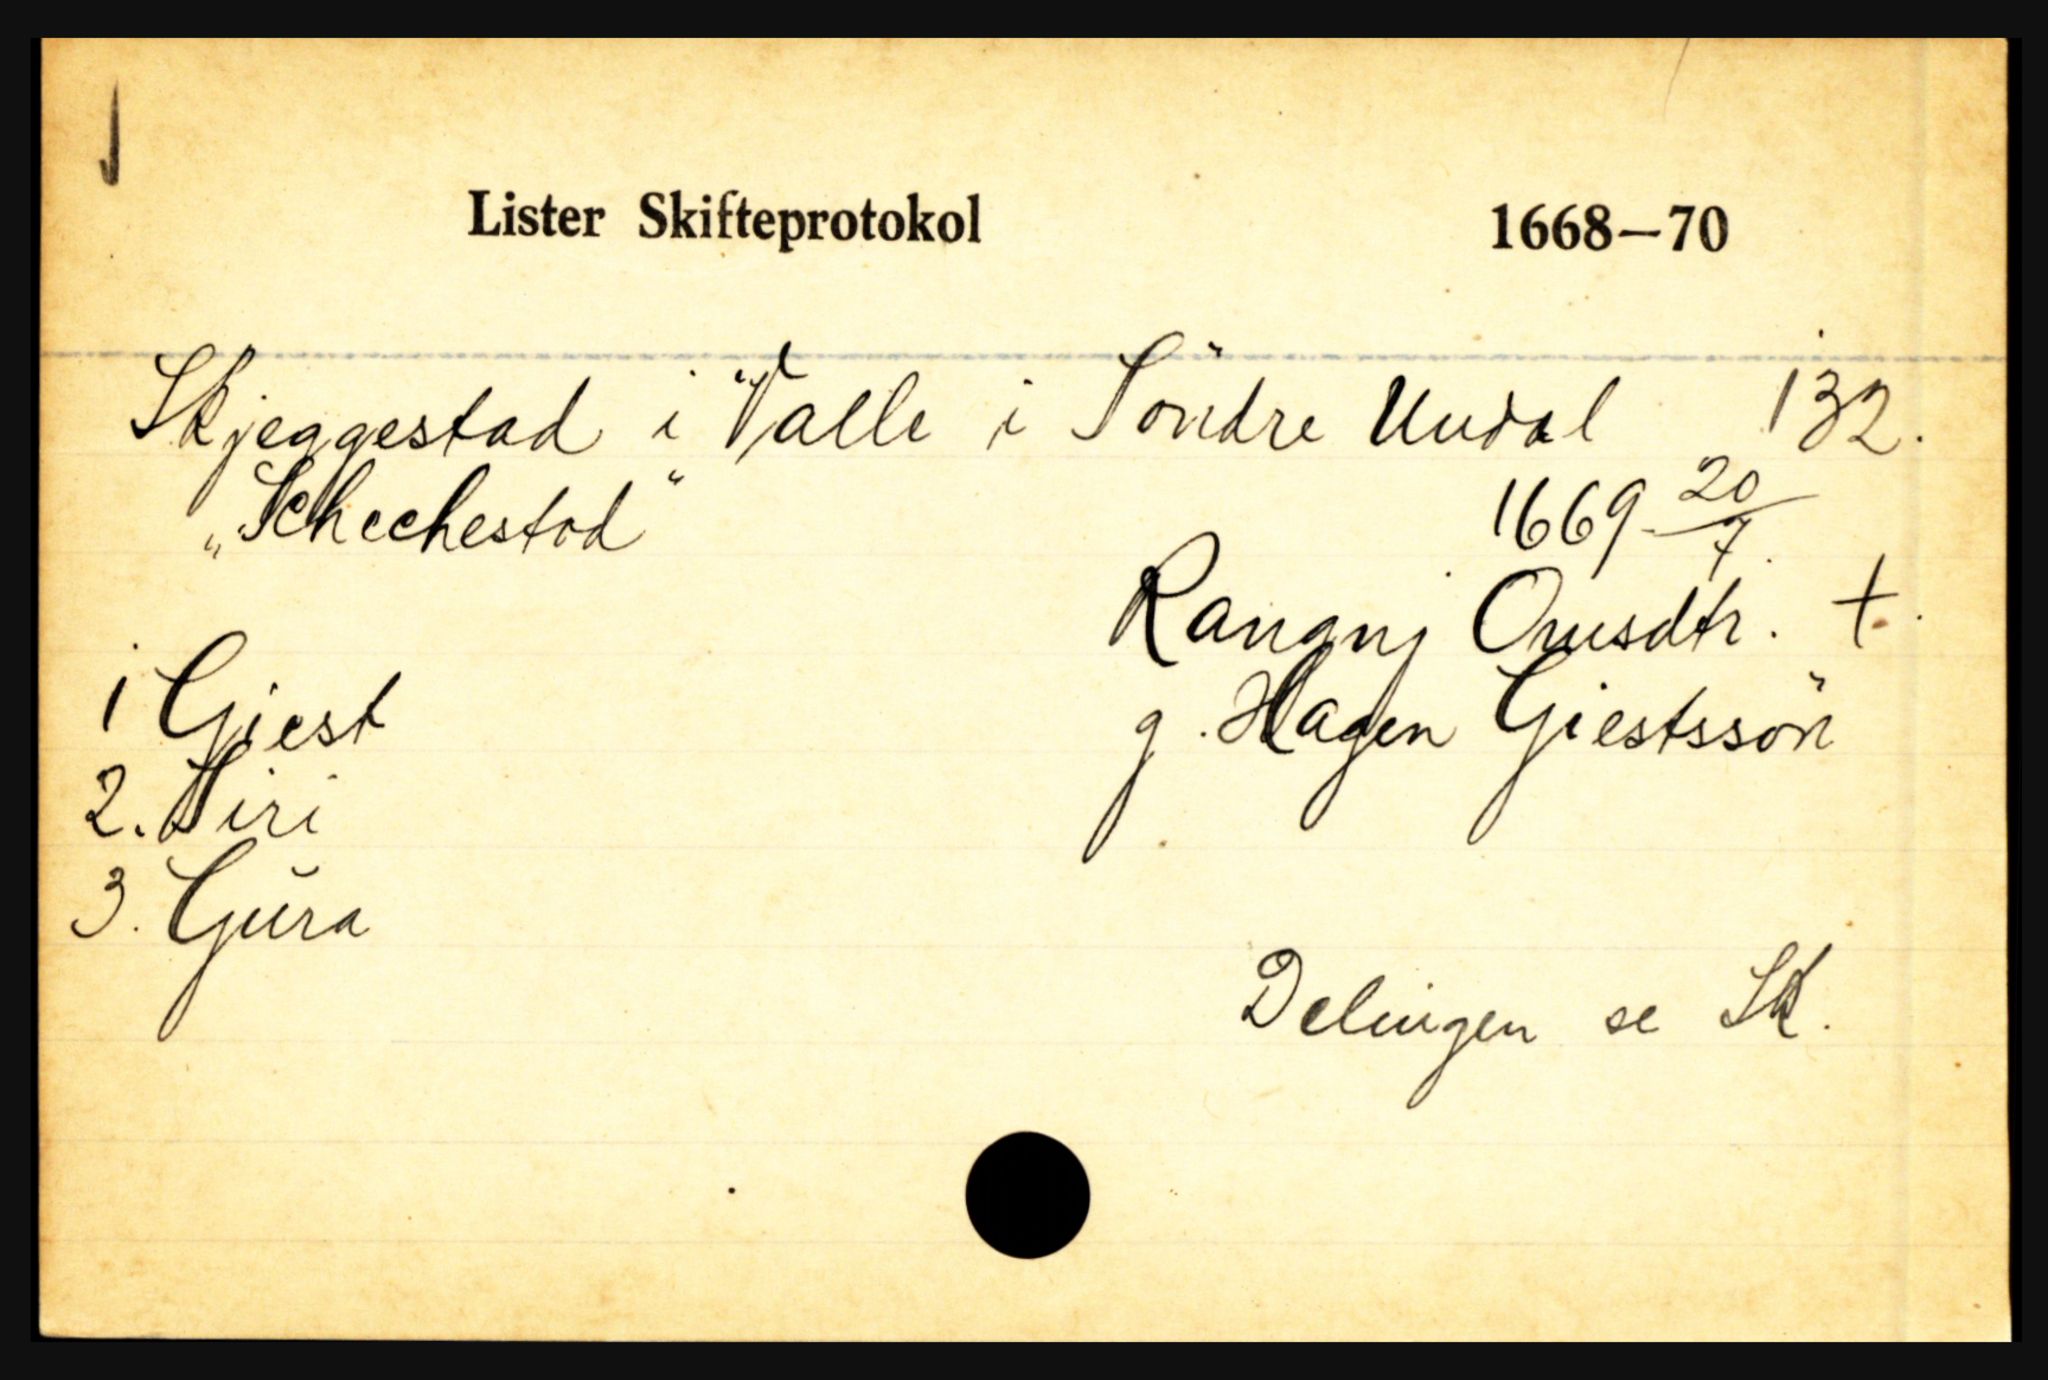 Lister Skifteprotokol 1668—70
Skjeggestad i Valle i Söndre Undal 132.
„Schechestad“ 1669 20/7.
Rangnj Omsdtr. †.
1 Giest g. Hagen Giestssön
2. Siri
3. Gŭra
Delingen se Sk.